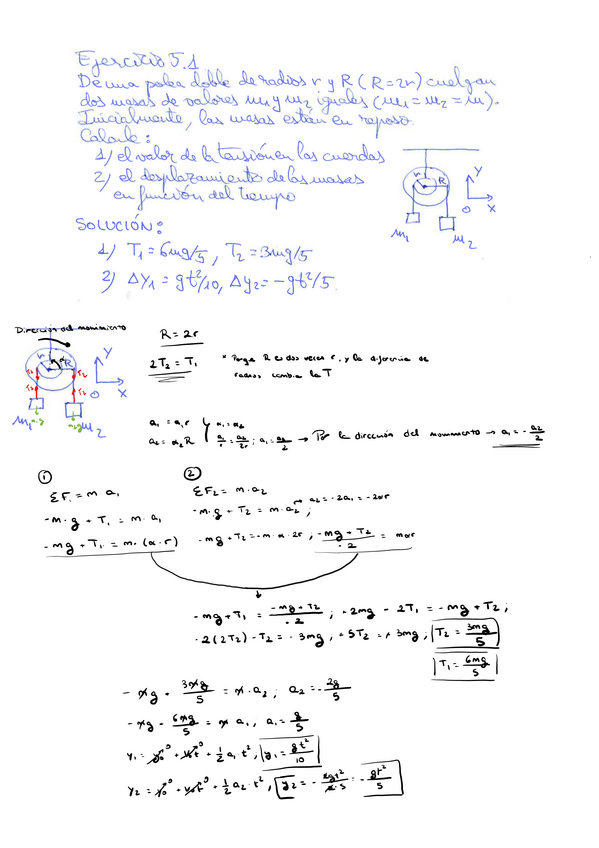 Ejercicio 5.1
De una polea doble de radios r y R (R=2r) cuelgan
dos masas de valores m1 y m2 iguales (m1 = m2 = m).
Inicialmente, las masas están en reposo.
Calcule:
1) el valor de la tensión en las cuerdas
2) el desplazamiento de las masas
en función del tiempo
r R
Y
O X
m1 m2
SOLUCIÓN:
1) T1 = 6mg/5, T2 = 3mg/5
2) Δy1 = gt²/10, Δy2 = -gt²/5.
Dirección del movimiento
R = 2r
2T2 = T1 * Porque R es dos veces r, y la diferencia de
radios cambia la T
r α R
T1 T2
T1 T2
Y
O X
m1 m·g m·g m2
a1 = α1 r
a2 = α2 R
α1 = α2
a1/r = a2/2r ; a1 = a2/2 → Por la dirección del movimiento → a1 = - a2/2
① ②
ΣF1 = m·a1
ΣF2 = m·a2
-m·g + T1 = m·a1
-m·g + T2 = m·a2 ; → a2 = -2a1 = -2αr
-mg + T1 = m·(α·r)
-mg + T2 = -m·α·2r ; -mg + T2/-2 = mαr
-mg + T1 = -mg + T2/-2 ; +2mg - 2T1 = -mg + T2 ;
-2(2T2) - T2 = -3mg ; +5T2 = +3mg ; T2 = 3mg/5
T1 = 6mg/5
-mg + 3mg/5 = m·a2 ; a2 = - 2g/5
-mg - 6mg/5 = m a1 , a1 = g/5
y1 = y0⁰ + v0t⁰ + 1/2 a1 t² , y1 = gt²/10
y2 = y0⁰ + v0t⁰ + 1/2 a2·t² , y2 = - 2gt²/2·5 = - gt²/5